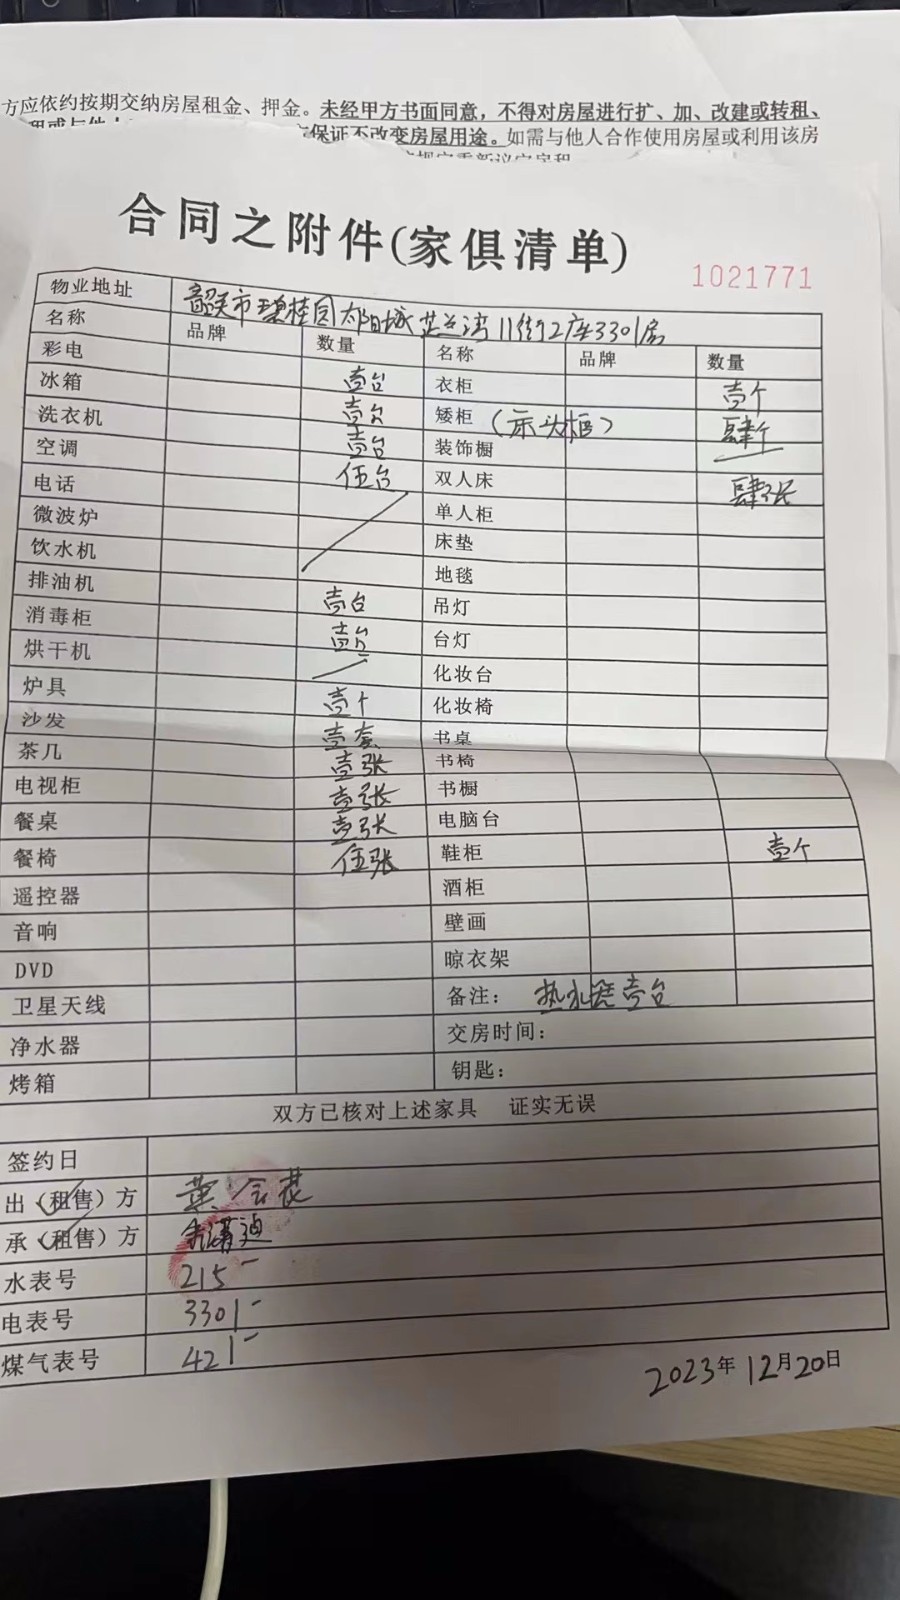 方应依约按期交纳房屋租金、押金。未经甲方书面同意，不得对房屋进行扩、加、改建或转租、
保证不改变房屋用途。如需与他人合作使用房屋或利用该房
合同之附件(家俱清单)
1021771
物业地址 韶关市碧桂园太阳城芷兰湾11街12座3301房
名称 品牌 数量 名称 品牌 数量
彩电 壹台 衣柜 壹个
冰箱 壹台 矮柜(床头柜) 肆个
洗衣机 壹台 装饰橱
空调 伍台 双人床 肆张
电话 单人柜
微波炉 床垫
饮水机 地毯
排油机 壹台 吊灯
消毒柜 壹台 台灯
烘干机 化妆台
炉具 壹个 化妆椅
沙发 壹套 书桌
茶几 壹张 书椅
电视柜 壹张 书橱
餐桌 壹张 电脑台
餐椅 伍张 鞋柜 壹个
遥控器 酒柜
音响 壁画
DVD 晾衣架
卫星天线 备注： 热水器壹台
净水器 交房时间：
烤箱 钥匙：
双方已核对上述家具 证实无误
签约日
出（租售）方
承（租售）方
水表号 215-
电表号 3301-
煤气表号 421-
2023年12月20日